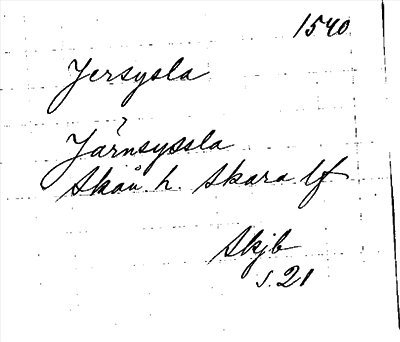 1540
Jersysla
?
Järnsyssla
Skån. h. Skara lf
Skjb
s. 21